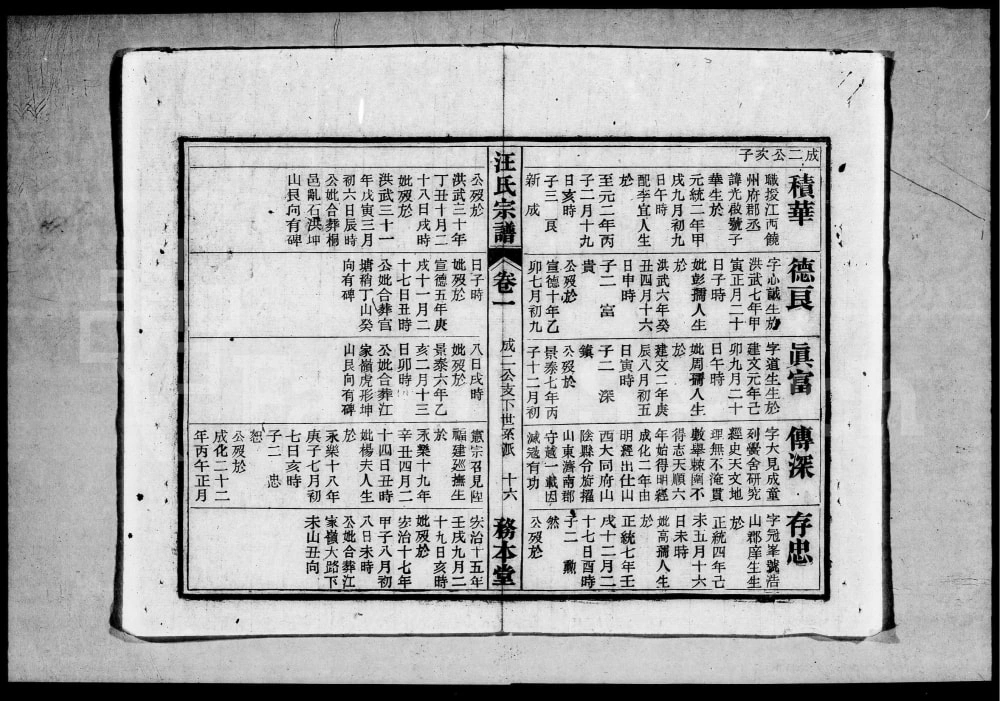 成二公亥子
積華
職授江西饒
州府郡丞
諱光啟號子
華生於
元統二年甲
戌九月初九
日午時
配李宜人生
於
至元二年丙
子二月十九
日亥時
子三 艮
新 成
公歿於
洪武三十年
丁丑十月二
十八日戌時
妣歿於
洪武三十一
年戊寅三月
初六日辰時
公妣合葬楊
邑亂石洪坤
山艮向有碑
德艮
字心誠生於
洪武七年甲
寅正月二十
日子時
妣彭孺人生
於
洪武六年癸
丑四月十六
日申時
子二 富
貴
公歿於
宣德十年乙
卯七月初九
日子時
妣歿於
宣德五年庚
戌十一月二
十七日丑時
公妣合葬官
塘稍丁山癸
向有碑
眞富
字道生生於
建文元年己
卯九月二十
日午時
妣周孺人生
於
建文二年庚
辰八月初五
日寅時
子二 深
鎮
公歿於
景泰七年丙
子十二月初
八日戌時
妣歿於
景泰六年乙
亥二月十三
日卯時
公妣合葬江
家嶺虎形坤
山艮向有碑
傳深
字大見成童
刻黌舍研究
經史天文地
理無不淹貫
數舉棘闈不
得志天順六
年始得明經
成化二年由
明經出仕山
西大同府山
陰縣令旋擢
山東濟南郡
守越一載因
減逓有功
憲宗召見陞
福建廵撫生
於
永樂十九年
辛丑四月二
十四日丑時
妣楊夫人生
於
永樂十八年
庚子七月初
七日亥時
子二 忠
恕
公歿於
成化二十二
年丙午正月
存忠
字冠峯號浩
山郡庠生生
於
正統四年己
未五月十六
日未時
妣高孺人生
於
正統七年壬
戌十二月二
十七日酉時
子二 勳
然
公歿於
宏治十五年
壬戌九月二
十九日亥時
妣歿於
宏治十七年
甲子八月初
八日未時
公妣合葬江
家嶺大路下
未山丑向
汪氏宗譜
卷一
成二公亥下世系派
十六
務本堂